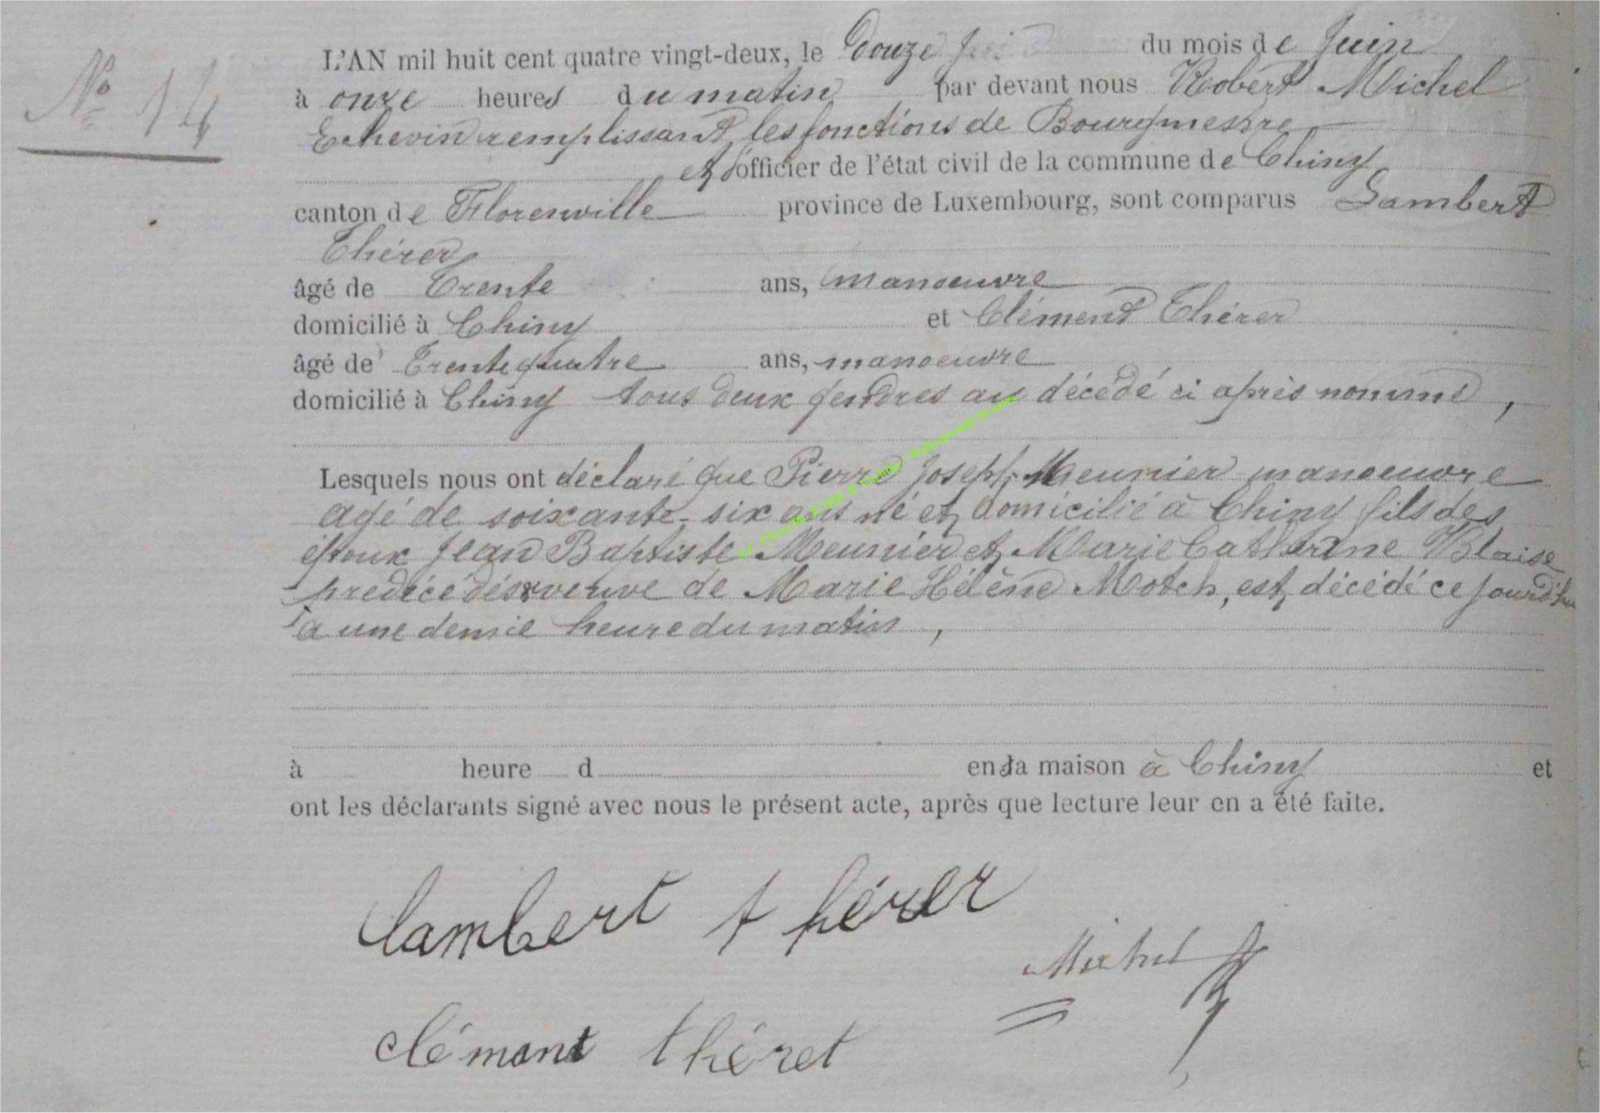 N° 14
L'AN mil huit cent quatre vingt-deux, le Douze du mois de Juin
à onze heures du matin par devant nous Robert Michel
Echevin remplissant les fonctions de Bourgmestre
et d'officier de l'état civil de la commune de Chiny
canton de Florenville province de Luxembourg, sont comparus Lambert
Thérer
âgé de Trente ans, manoeuvre
domicilié à Chiny et Clément Thérer
âgé de Trente quatre ans, manoeuvre
domicilié à Chiny tous deux gendres au décédé ci après nommé,
Lesquels nous ont déclaré que Pierre Joseph Meunier manoeuvre
agé de soixante-six ans né et domicilié à Chiny fils des
époux Jean Baptiste Meunier et Marie Catherine Blaise
prédécédés veuve de Marie Hélène Motch, est décédé ce jourd'hui
à une demie heure du matin,
à heure d en sa maison à Chiny et
ont les déclarants signé avec nous le présent acte, après que lecture leur en a été faite.
lambert thérer
Michel R
clémant théret